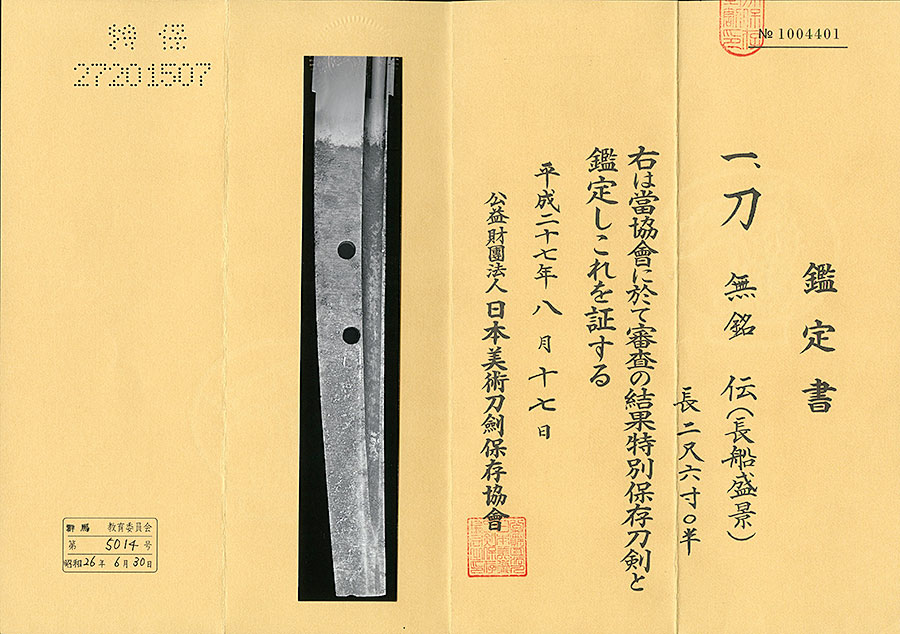 № 1004401
鑑定書
一、刀 無銘 伝(長船盛景)
長二尺六寸〇半
右は當協會に於て審査の結果特別保存刀剣と
鑑定しこれを証する
平成二十七年八月十七日
公益財團法人 日本美術刀劍保存協會
特 保
27201507
群馬 教育委員会
第 5014 号
昭和26年6月30日